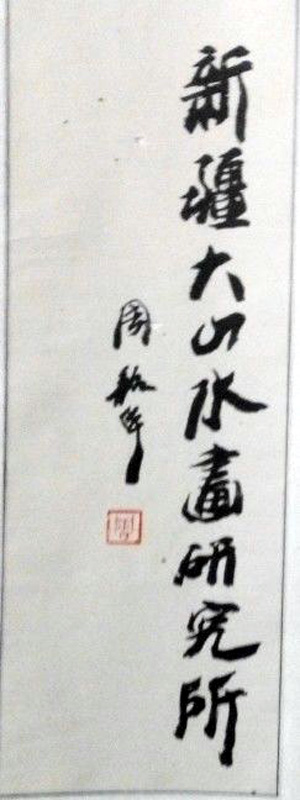 新疆大山水畫研究所
周韶華